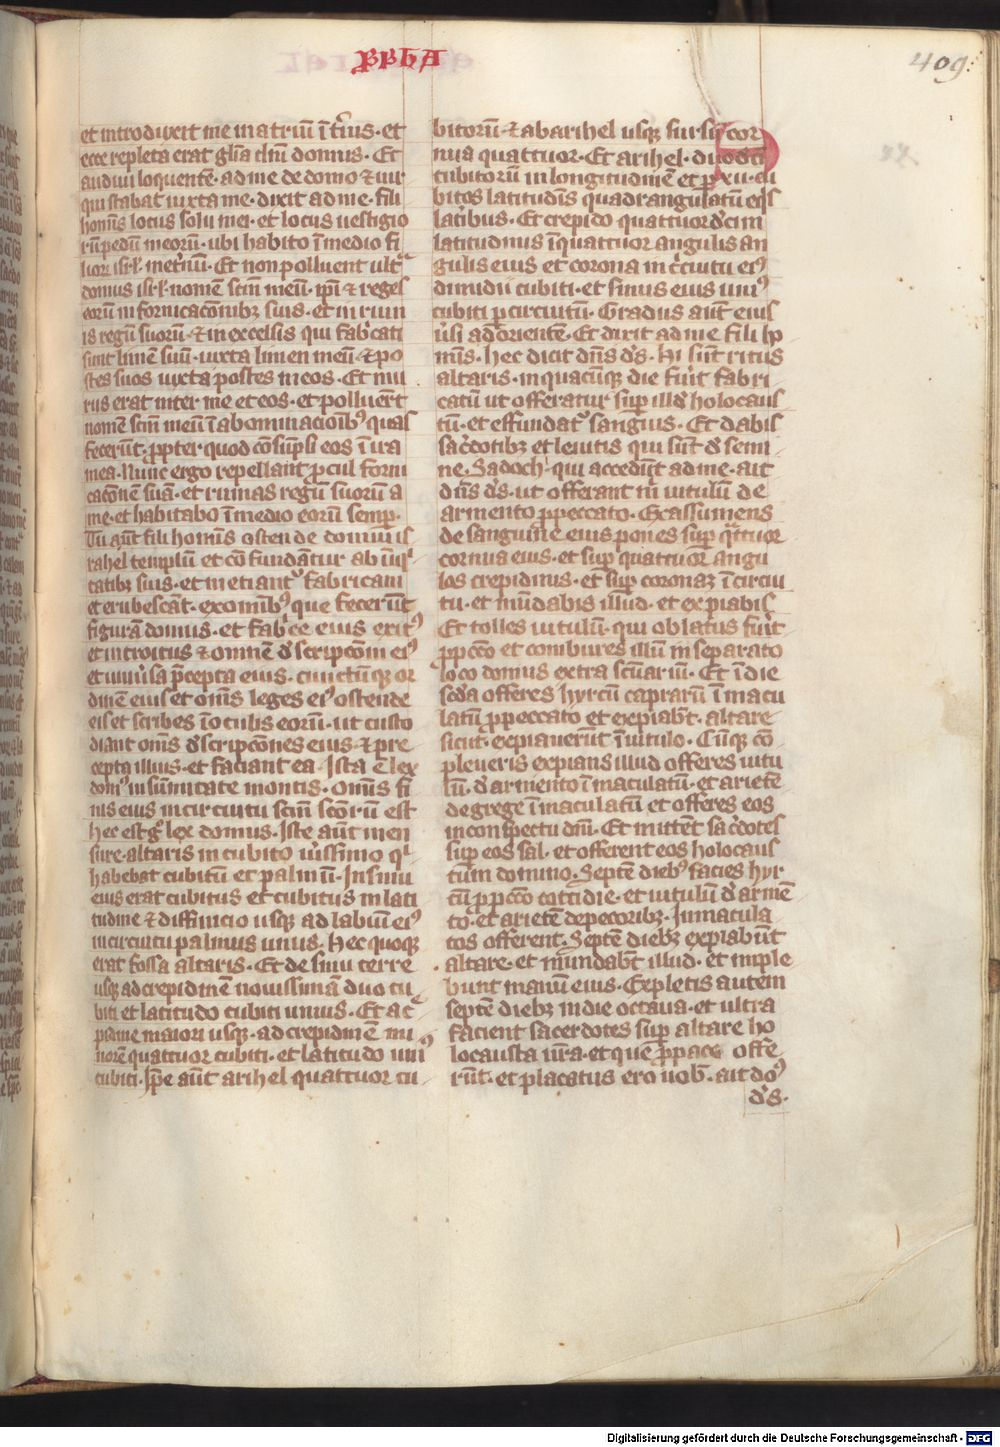 PROPHA
409
et introduxit me in atriū īt̄ius · et
ecce repleta erat gl̄ia dn̄i domus · Et
audiui loquentē · ad me de domo ⁊ uir
qui stabat iuxta me · dixit ad me · fili
hom̄is locus solii mei · et locus uestigio
rū pedū meorū · ubi habito ī medio fi
liorū isrl̄ · inet̄nū · Et non polluent ult̄
domus isrl̄ · nomē sc̄m meū · ip̄i ⁊ reges
eorū in fornicacōnibꝫ suis · et in ruin
is regū suorū · ⁊ in excelsis qui fab̓cati
sunt limē suū · iuxta limen meū · ⁊ po
stes suos iuxta postes meos · Et mu
rus erat inter me et eos · et polluer̄t
nomē sc̄m meū ī abominacionibꝰ quas
fecerūt · ꝓpter quod cōsūpsi eos ī ira
mea · Nunc ergo repellant ꝓcul forni
cacōnē suā · et ruinas regū suorū a
me · et habitabo ī medio eorū semꝑ ·
Tu aūt fili hominis ostende domui is
rahel templū · et cōfundantur ab īiq̓
tatibꝫ suis · et metiantꝰ fabricam
et erubescāt · ex om̄ibꝰ que fecerūt
figurā domus · et fab̓ce eius exitꝰ
et introitus ⁊ omnē d̓scripcōm eiꝰ
et uniu̓sa p̄cepta eius · cunctūqꝫ or
dinē eius et om̄s leges eiꝰ ostende
eis et scribes ī oculis eorū · ut custo
diant om̄s d̓scripcōnes eius · ⁊ pre
cepta illius · et faciant ea · Ista ē lex
domꝰ in sūmitate montis · Om̄is fi
nis eius in circuitu sc̄m sc̄orū est
hec est gͦ lex domus · Iste aūt men
sure · altaris in cubito u̓issimo qͥ
habebat cubitū et palmū · In sinu
eius erat cubitus et cubitus in lati
tudine ⁊ diffinicio usqꝫ ad labiū eiꝰ
in circuitu palmus unus · Hec quoqꝫ
erat fossa altaris · Et de sinu terre
usqꝫ ad crepidinē nouissimā duo cu
biti et latitudo cubiti unius · Et a c̄
pidine maiori usqꝫ · ad crepidinē mi
norē quattuor cubiti · et latitudo uniꝰ
cubiti · Ip̄e aūt arihel quattuor cu
bitorū · ⁊ ab arihel usqꝫ sursū cor
nua quattuor · Et arihel · duodeci
cubitorū in longitudinē et ꝑ xii · cu
bitos latitudīs quadrangulatū eq̓s
lat̓ibus · Et crepido quattuord̓cim
latitudinis ī quattuor angulis an
gulis eius et corona in c̓cuitu eiꝰ
dimidii cubiti · et sinus eius uniꝰ
cubiti ꝑ circuitū · Gradus aūt eius
u̓si ad orientē · Et dixit ad me fili ho
mīs · hec dicit dn̄s d̓s · Hi sūt ritus
altaris · in quacūqꝫ die fūit fabri
catū ut offeratur suꝑ illd̓ holocaus
tū · et effundatꝰ sanguis · Et dabis
sac̓dotibꝫ et leuitis qui sūt d̓ semi
ne · Sadoch · qui accedūt ad me · ait
dn̄s d̓s · ut offerant m̄ uitulū de
armento ꝓ peccato · Et assumens
de sanguine eius pones suꝑ q̓ttuor
cornua eius · et suꝑ quattuor angu
los crepidinis · et suꝑ coronaꝫ ī circui
tu · et mūdabis illud · et expiabis
Et tolles uitulū · qui oblatus fūit
ꝓ pcc̄o et combures illū in separato
loco domus extra sc̄uariū · Et ī die
scd̓a offeres hyrcū caprarū ī macu
latū ꝓ peccato et expiabt̄ · altare
sicut · expiauerūt ī uitulo · Cūqꝫ cō
pleueris expians illud offeres uitu
lū · d̓ armento īmaculatū · et arietē
de grege īmaculatū et offeres eos
in conspectu dn̄i · Et mittēt sac̓dotes
suꝑ eos sal · et offerent eos holocaus
tum domino · Septē diebꝰ facies hyr
cū ꝓ pcc̄o cottidie · et uitulū d̓ armē
to · et arietē de pecoribꝫ · Inmacula
tos offerent · Septē diebꝫ expiabūt
altare · et mūdabt̄ illud · et imple
bunt manū eius · Expletis autem
septē diebꝫ in die octaua · et ultra
facient sacerdotes suꝑ altare ho
locausta ur̄a · et que ꝓ pace offe
rūt · et placatus ero uob̄ · ait doꝰ
d̓s ·
Digitalisierung gefördert durch die Deutsche Forschungsgemeinschaft - DFG